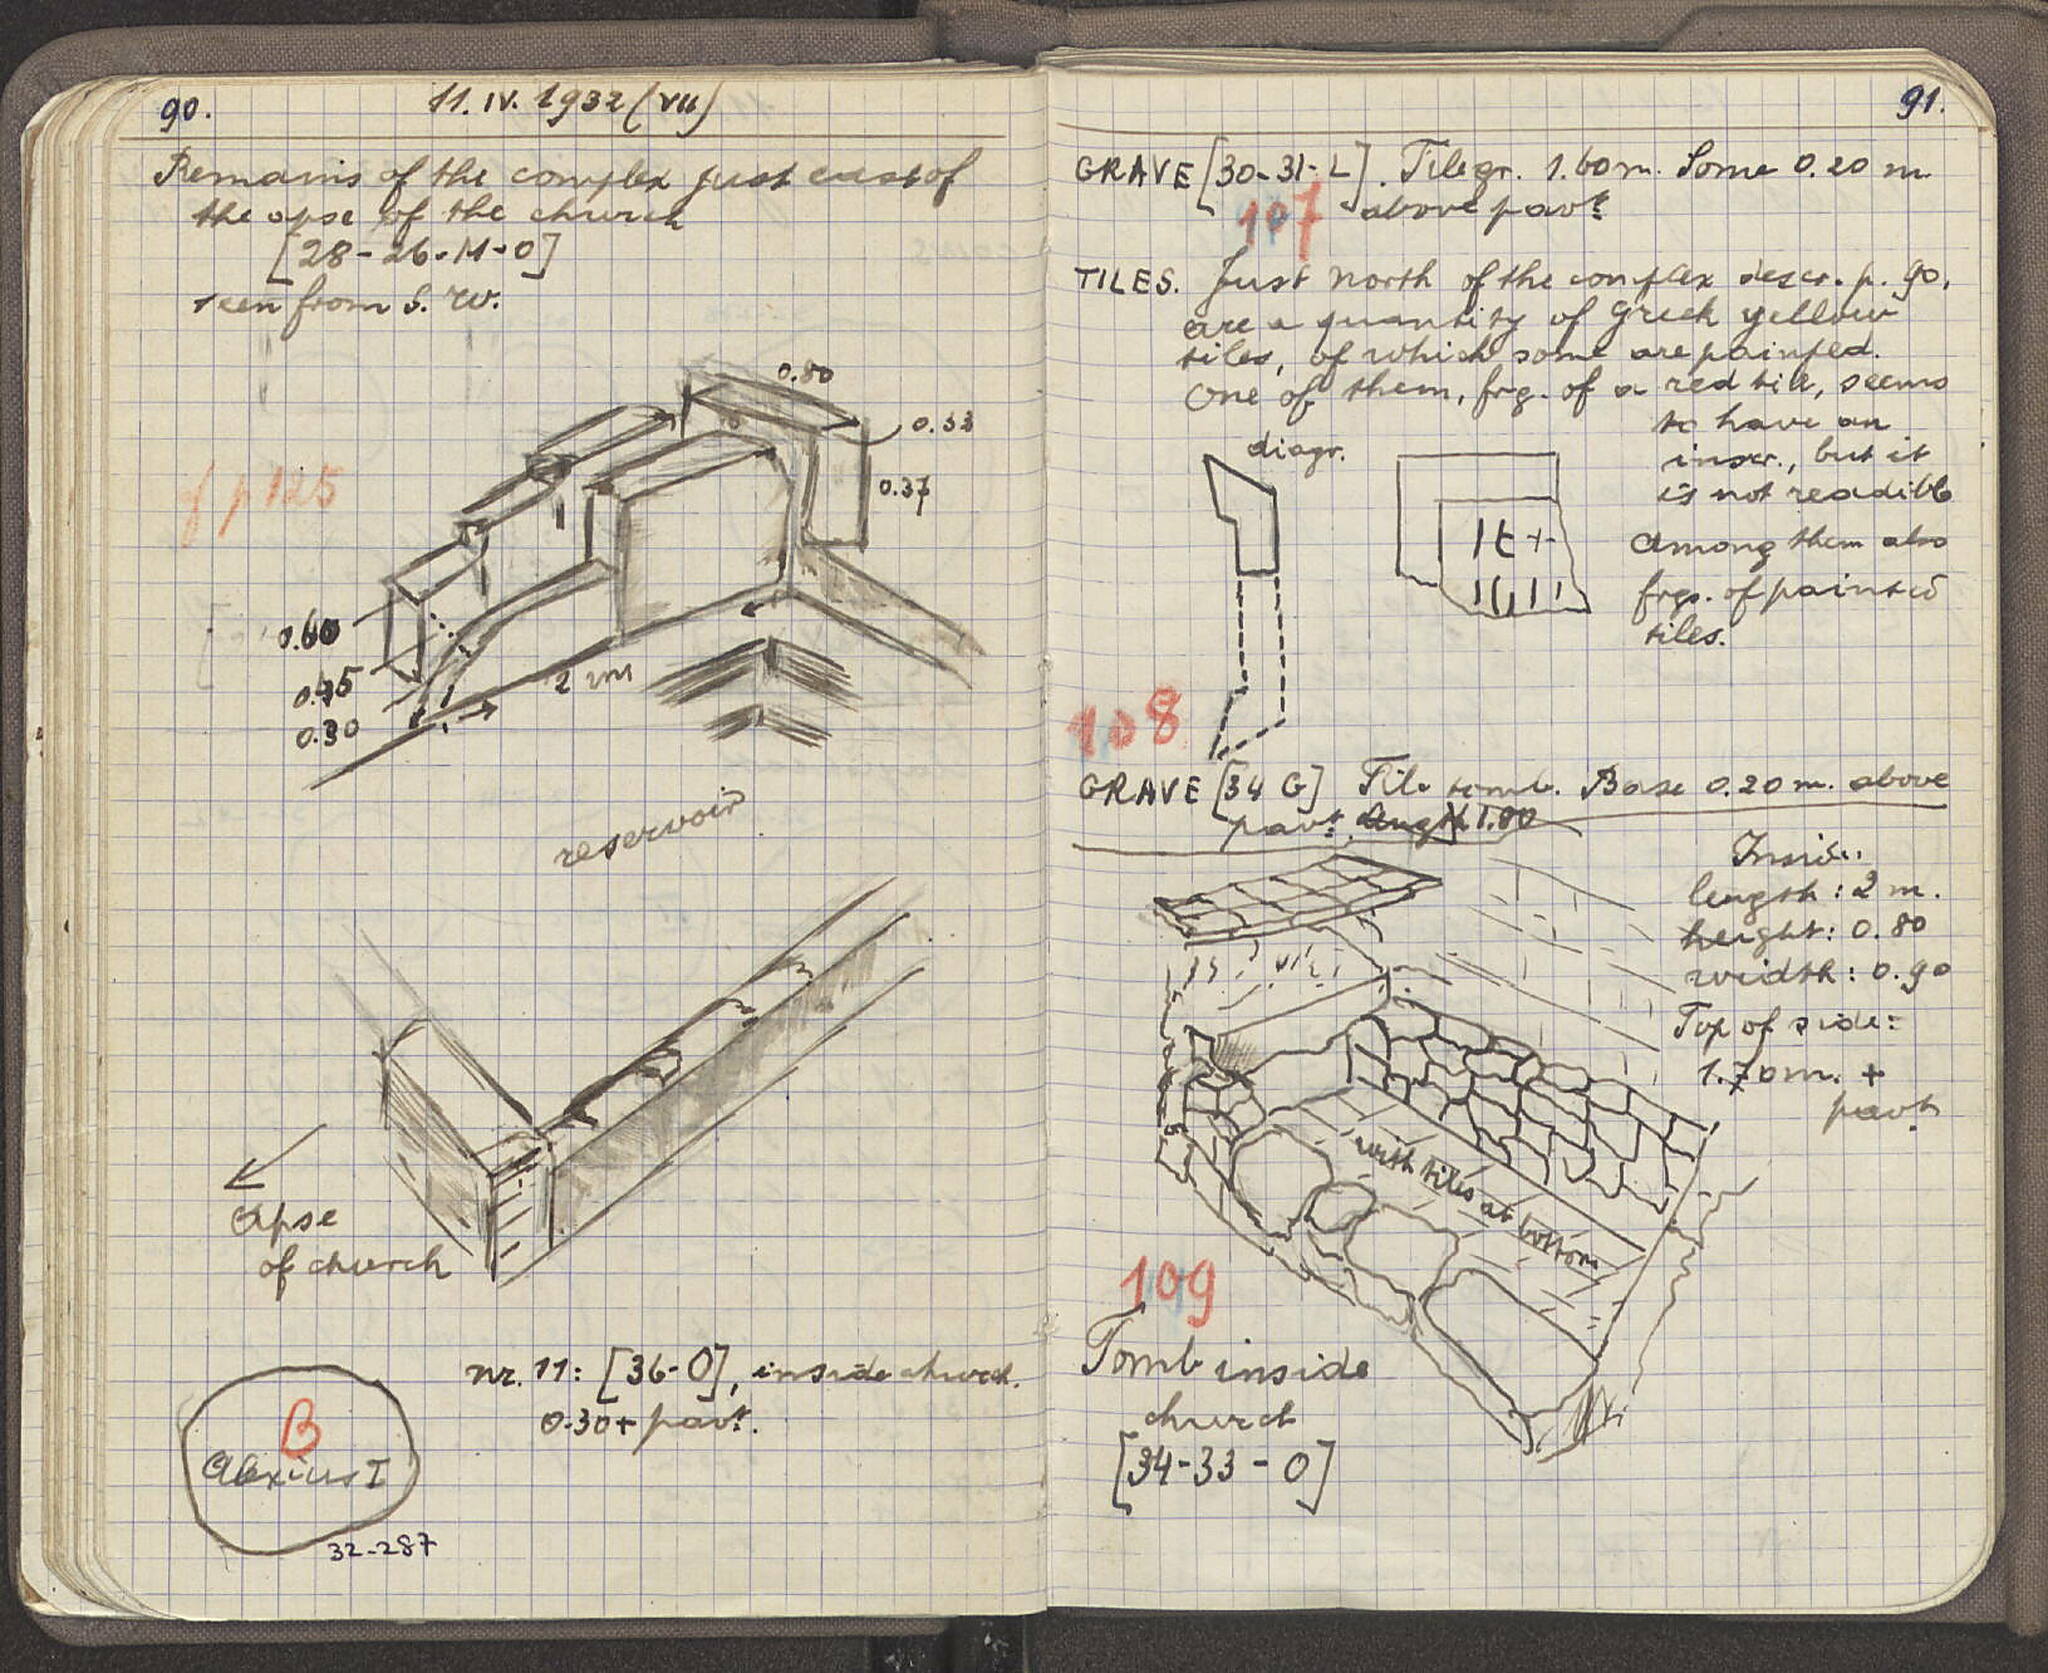 90.
11. IV. 1932 (VII)
Remains of the complex just east of
the apse of the church
[28-26-M-O]
seen from S. W.
0.80
0.33
0.37
cf p 125
0.60
0.45
0.30
2 m
reservoir
Apse
of church
nr. 11: [36-O], inside church.
0.30+ pavt.
B
Alexius I
32-287
91.
GRAVE [30-31-L]. Tilegr. 1.60 m. Some 0.20 m
107
above pavt.
TILES. Just north of the complex descr. p. 90,
are a quantity of Greek yellow
tiles, of which some are painted.
One of them, frg. of a red tile, seems
to have an
inscr., but it
is not readible
Among them also
frgs. of painted
tiles.
diagr.
108
GRAVE [34 G] Tile tomb. Base 0.20 m. above
pavt. length 1.80
Inside:
length: 2 m.
height: 0.80
width: 0.90
Top of side:
1.70 m. +
pavt.
with tiles at bottom
109
Tomb inside
church
[34-33-O]